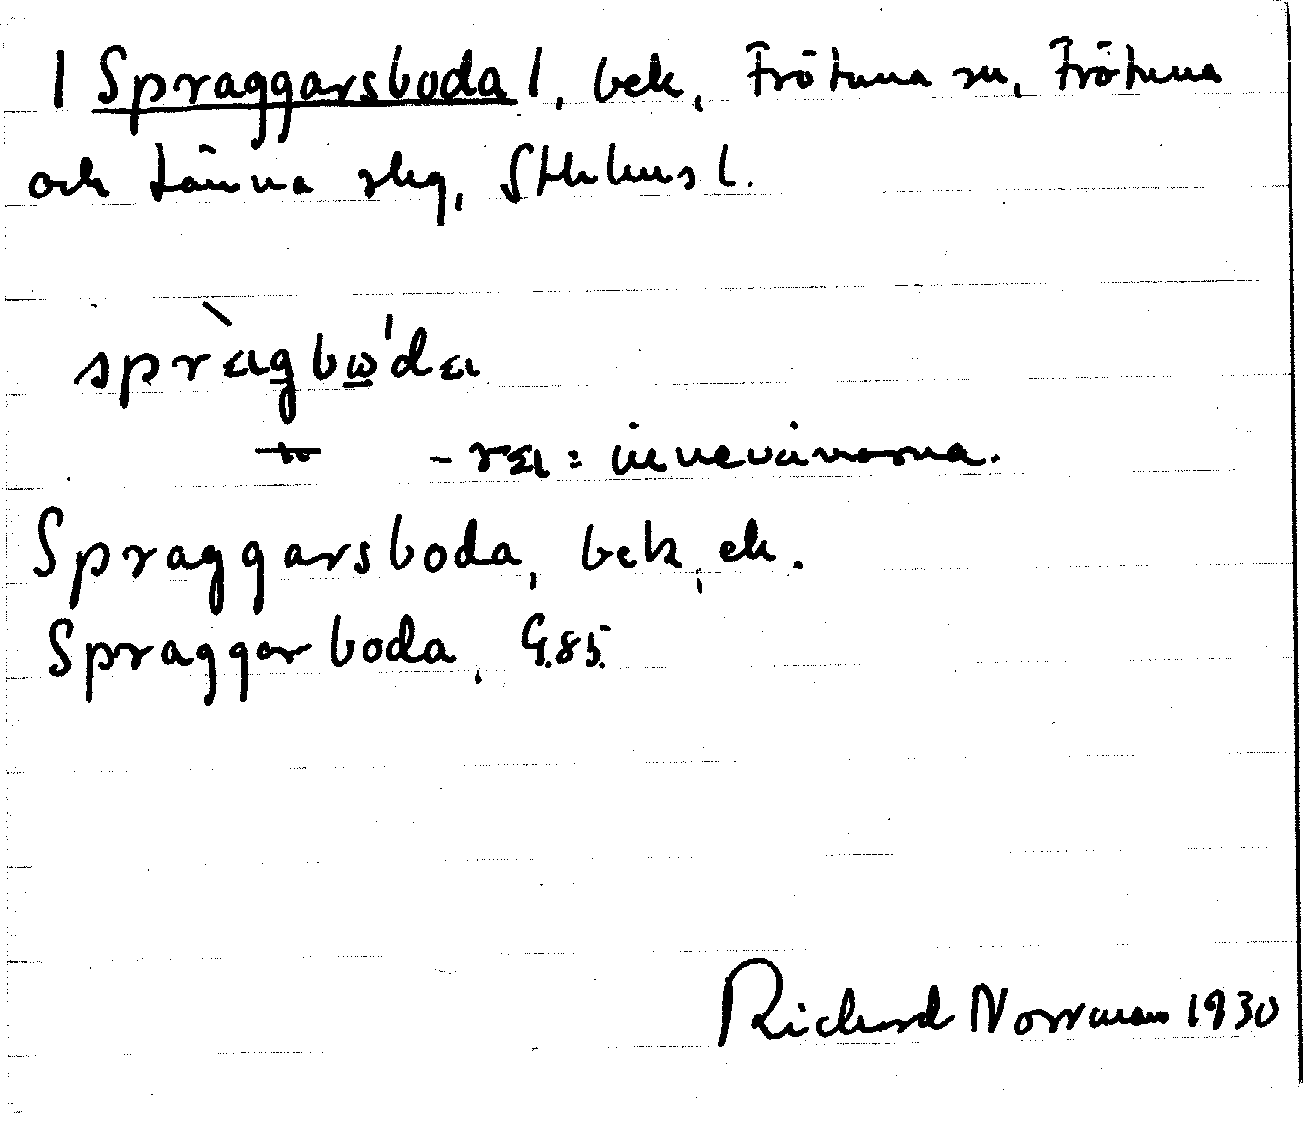 | Spraggarsboda |, bek, Frötuna sn, Frötuna
och Länna slg, Sthlms l.
spràgbω'da
- ra = innevånarna.
Spraggarsboda, bek, ek.
Spraggarboda, G.85.
Richard Norrman 1930